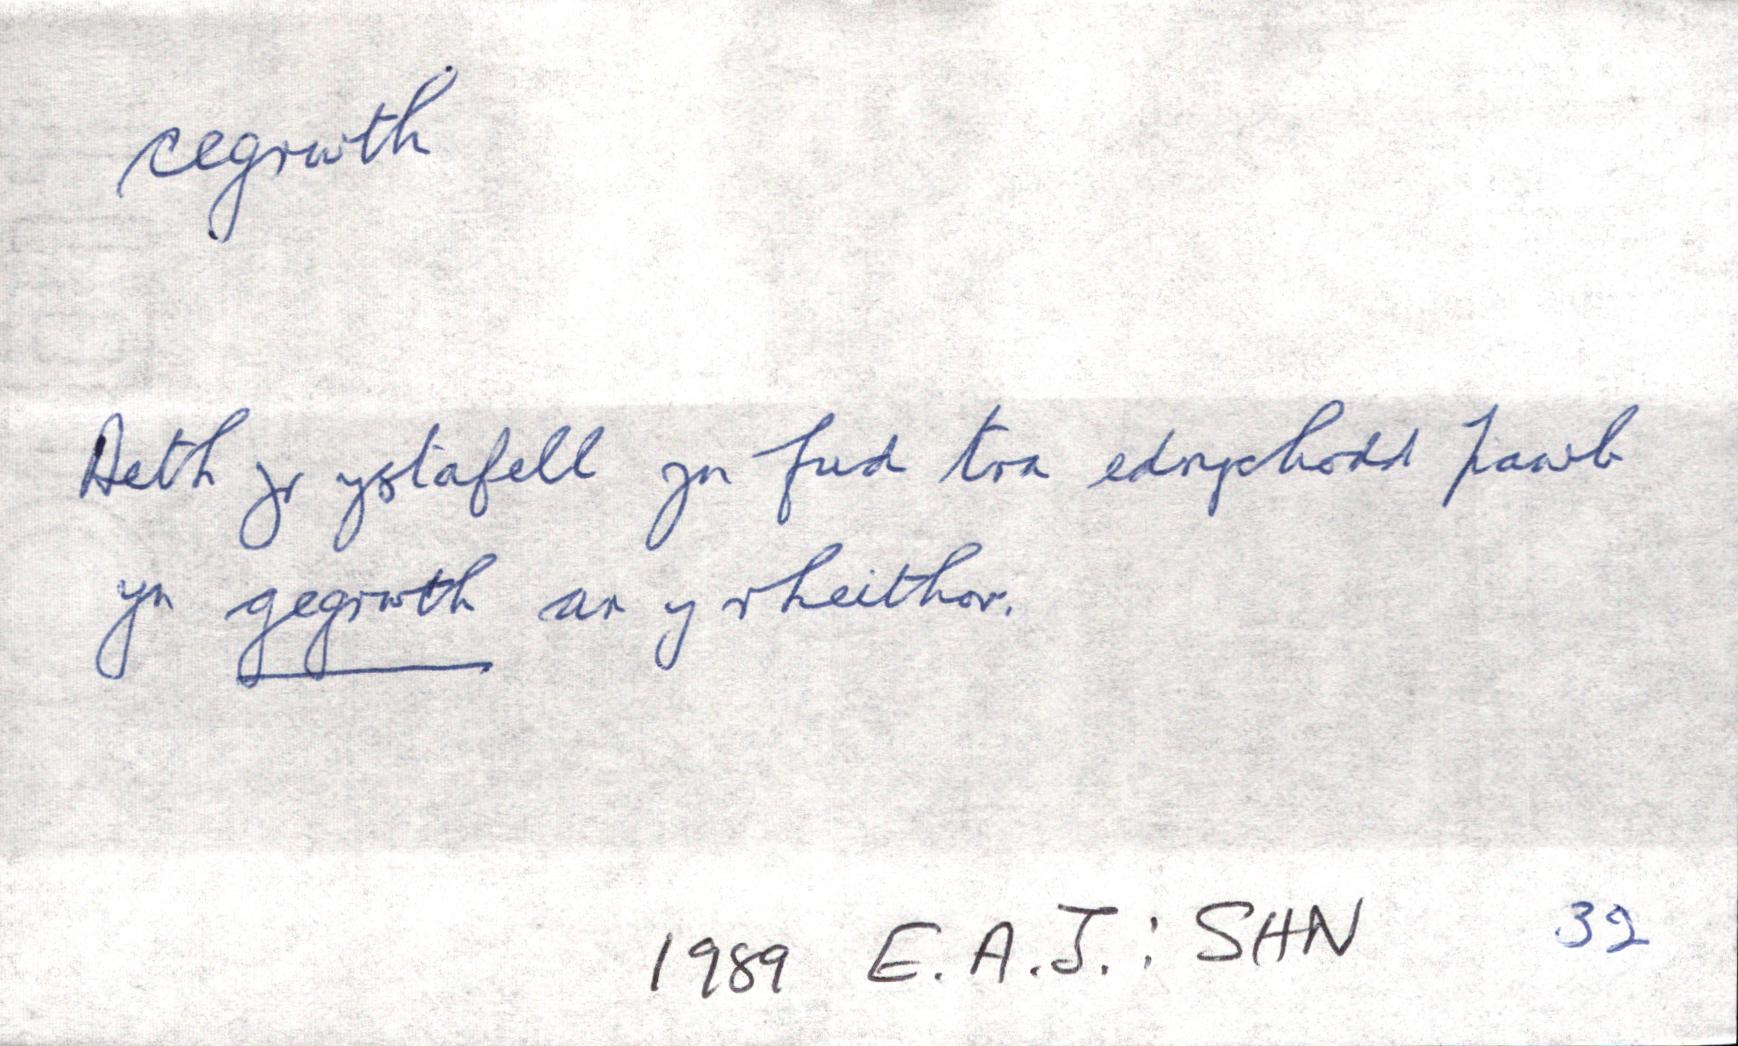 cegrwth
Aeth yr ystafell yn fud tra edrychodd pawb
yn gegrwth ar y rheithor.
1989 E.A.J.: SHN 32